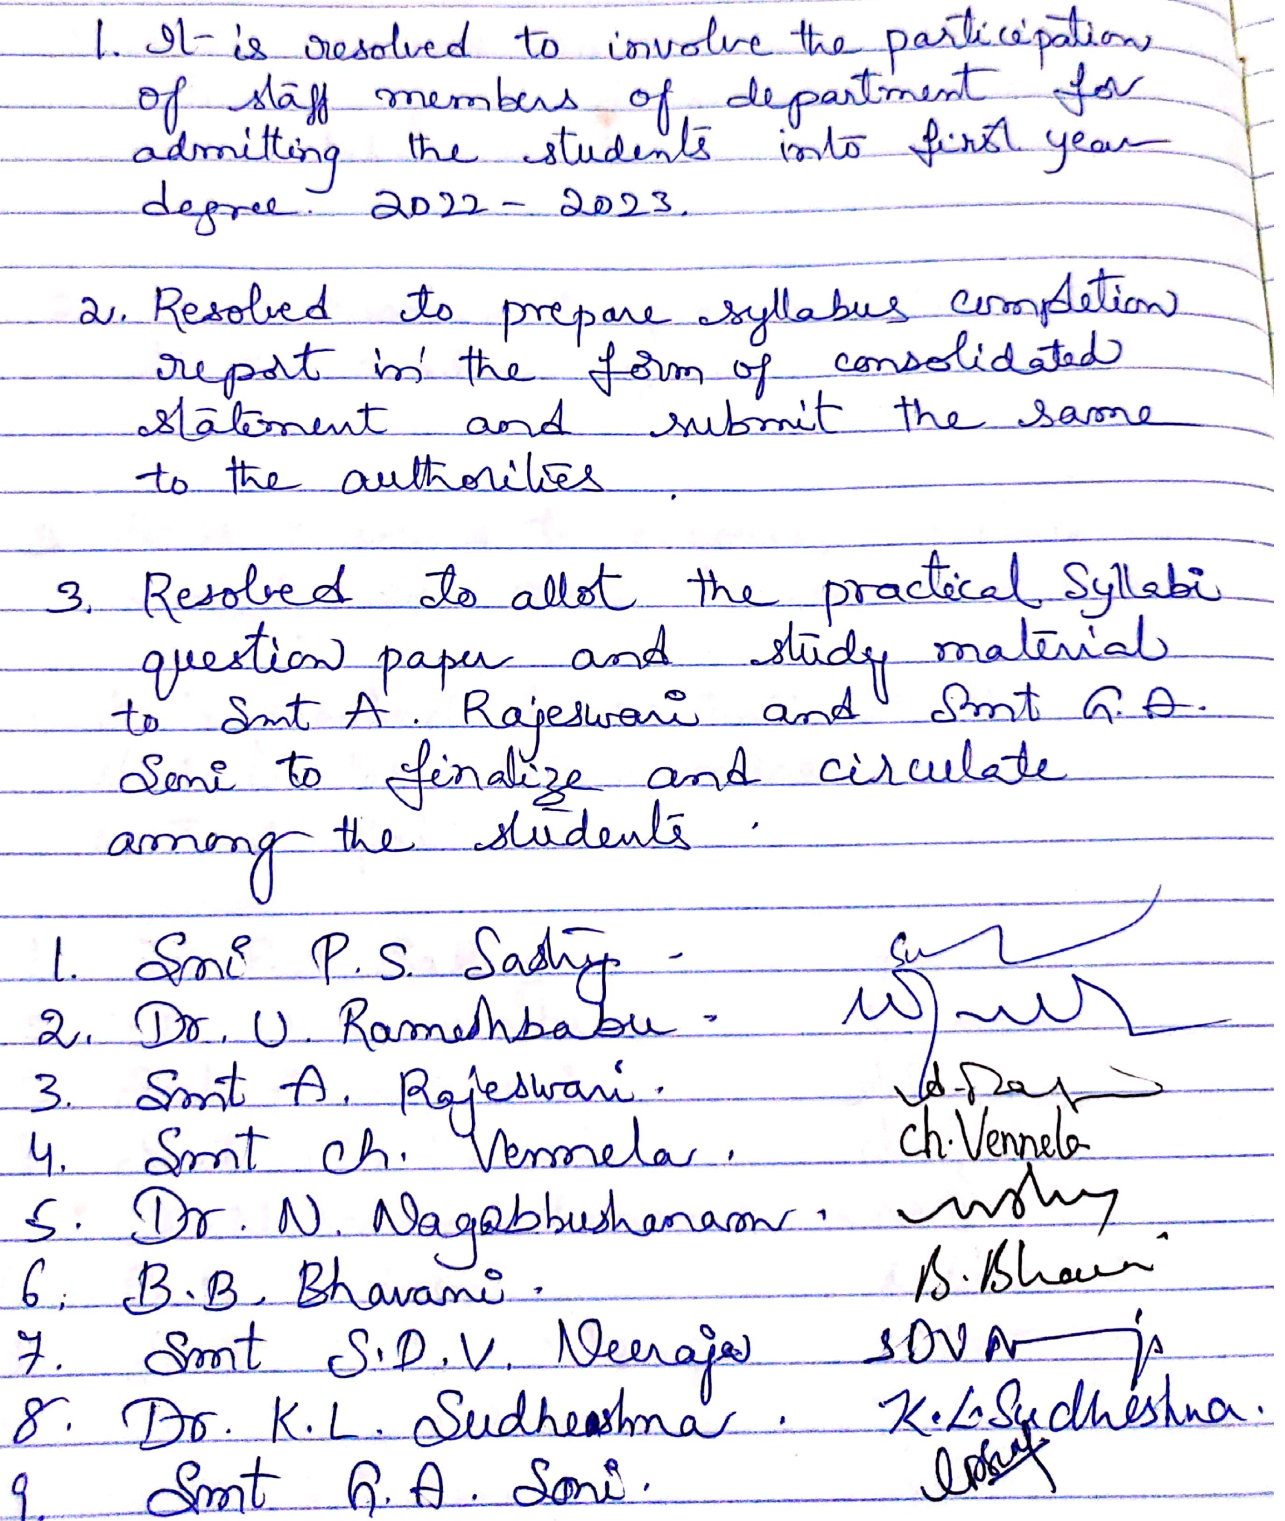 1. It is resolved to involve the participation
of staff members of department for
admitting the students into first year
degree. 2022 - 2023.
2. Resolved to prepare syllabus completion
report in the form of consolidated
statement and submit the same
to the authorities.
3. Resolved to allot the practical Syllabi
question paper and study material
to Smt A. Rajeswari and Smt G. A.
Soni to finalize and circulate
among the students.
1. Sri P. S. Sastry -
2. Dr. U. Rameshbabu -
3. Smt A. Rajeswari.
4. Smt Ch. Vennela. Ch. Vennela
5. Dr. N. Nagabbushanam.
6. B.B. Bhavani. B. Bhavani
7. Smt S.D.V. Neeraja SDVN
8. Dr. K.L. Sudheeshna. K.L. Sudheshna.
9. Smt G. A. Soni.